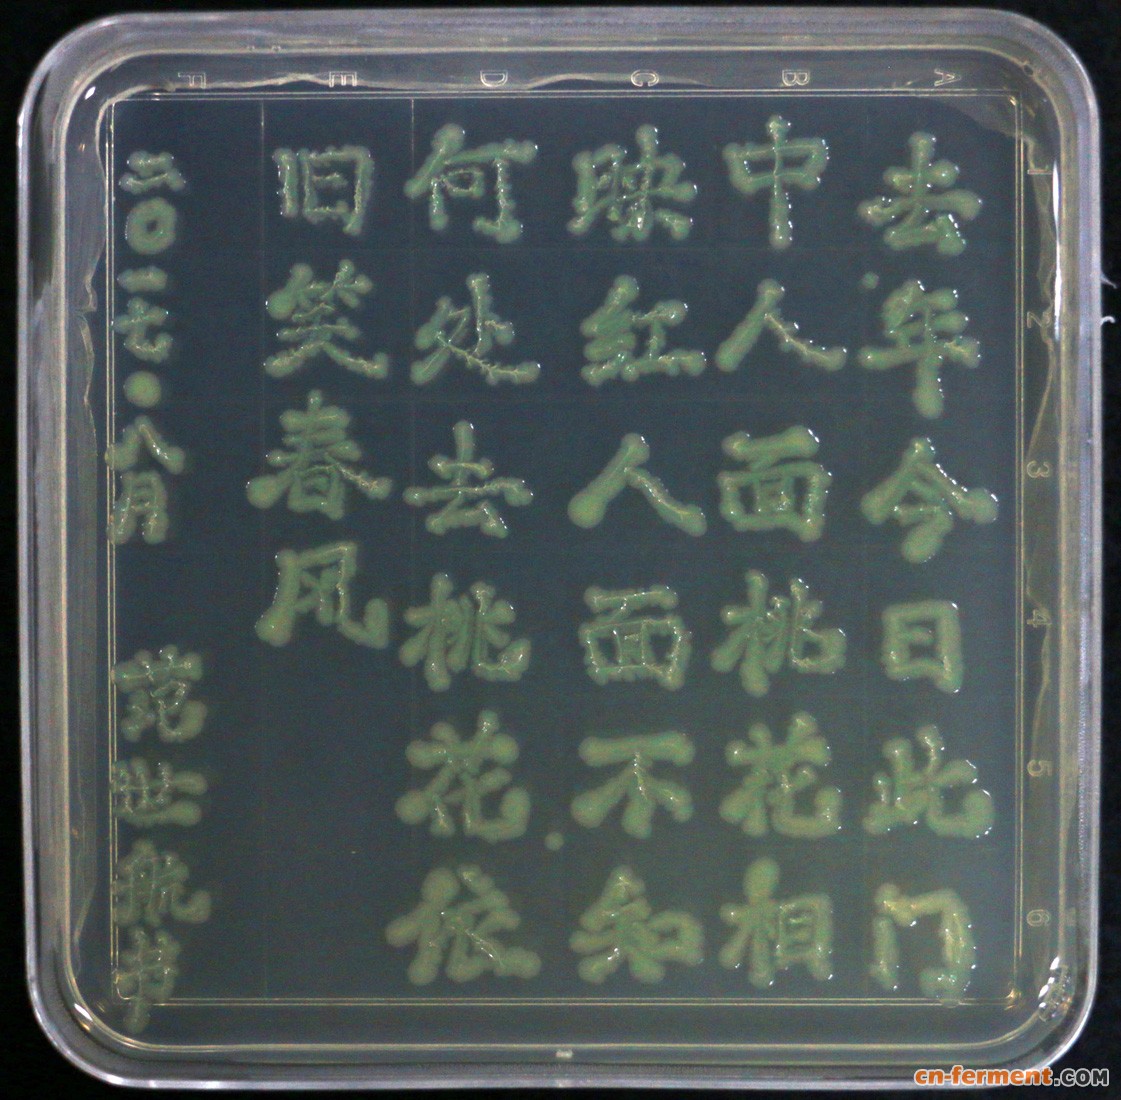 去年今日此门
中人面桃花相
映红人面不知
何处去桃花依
旧笑春风
二〇一七·八月 范世航书
A B C D E F
1 2 3 4 5 6
cn-ferment.COM